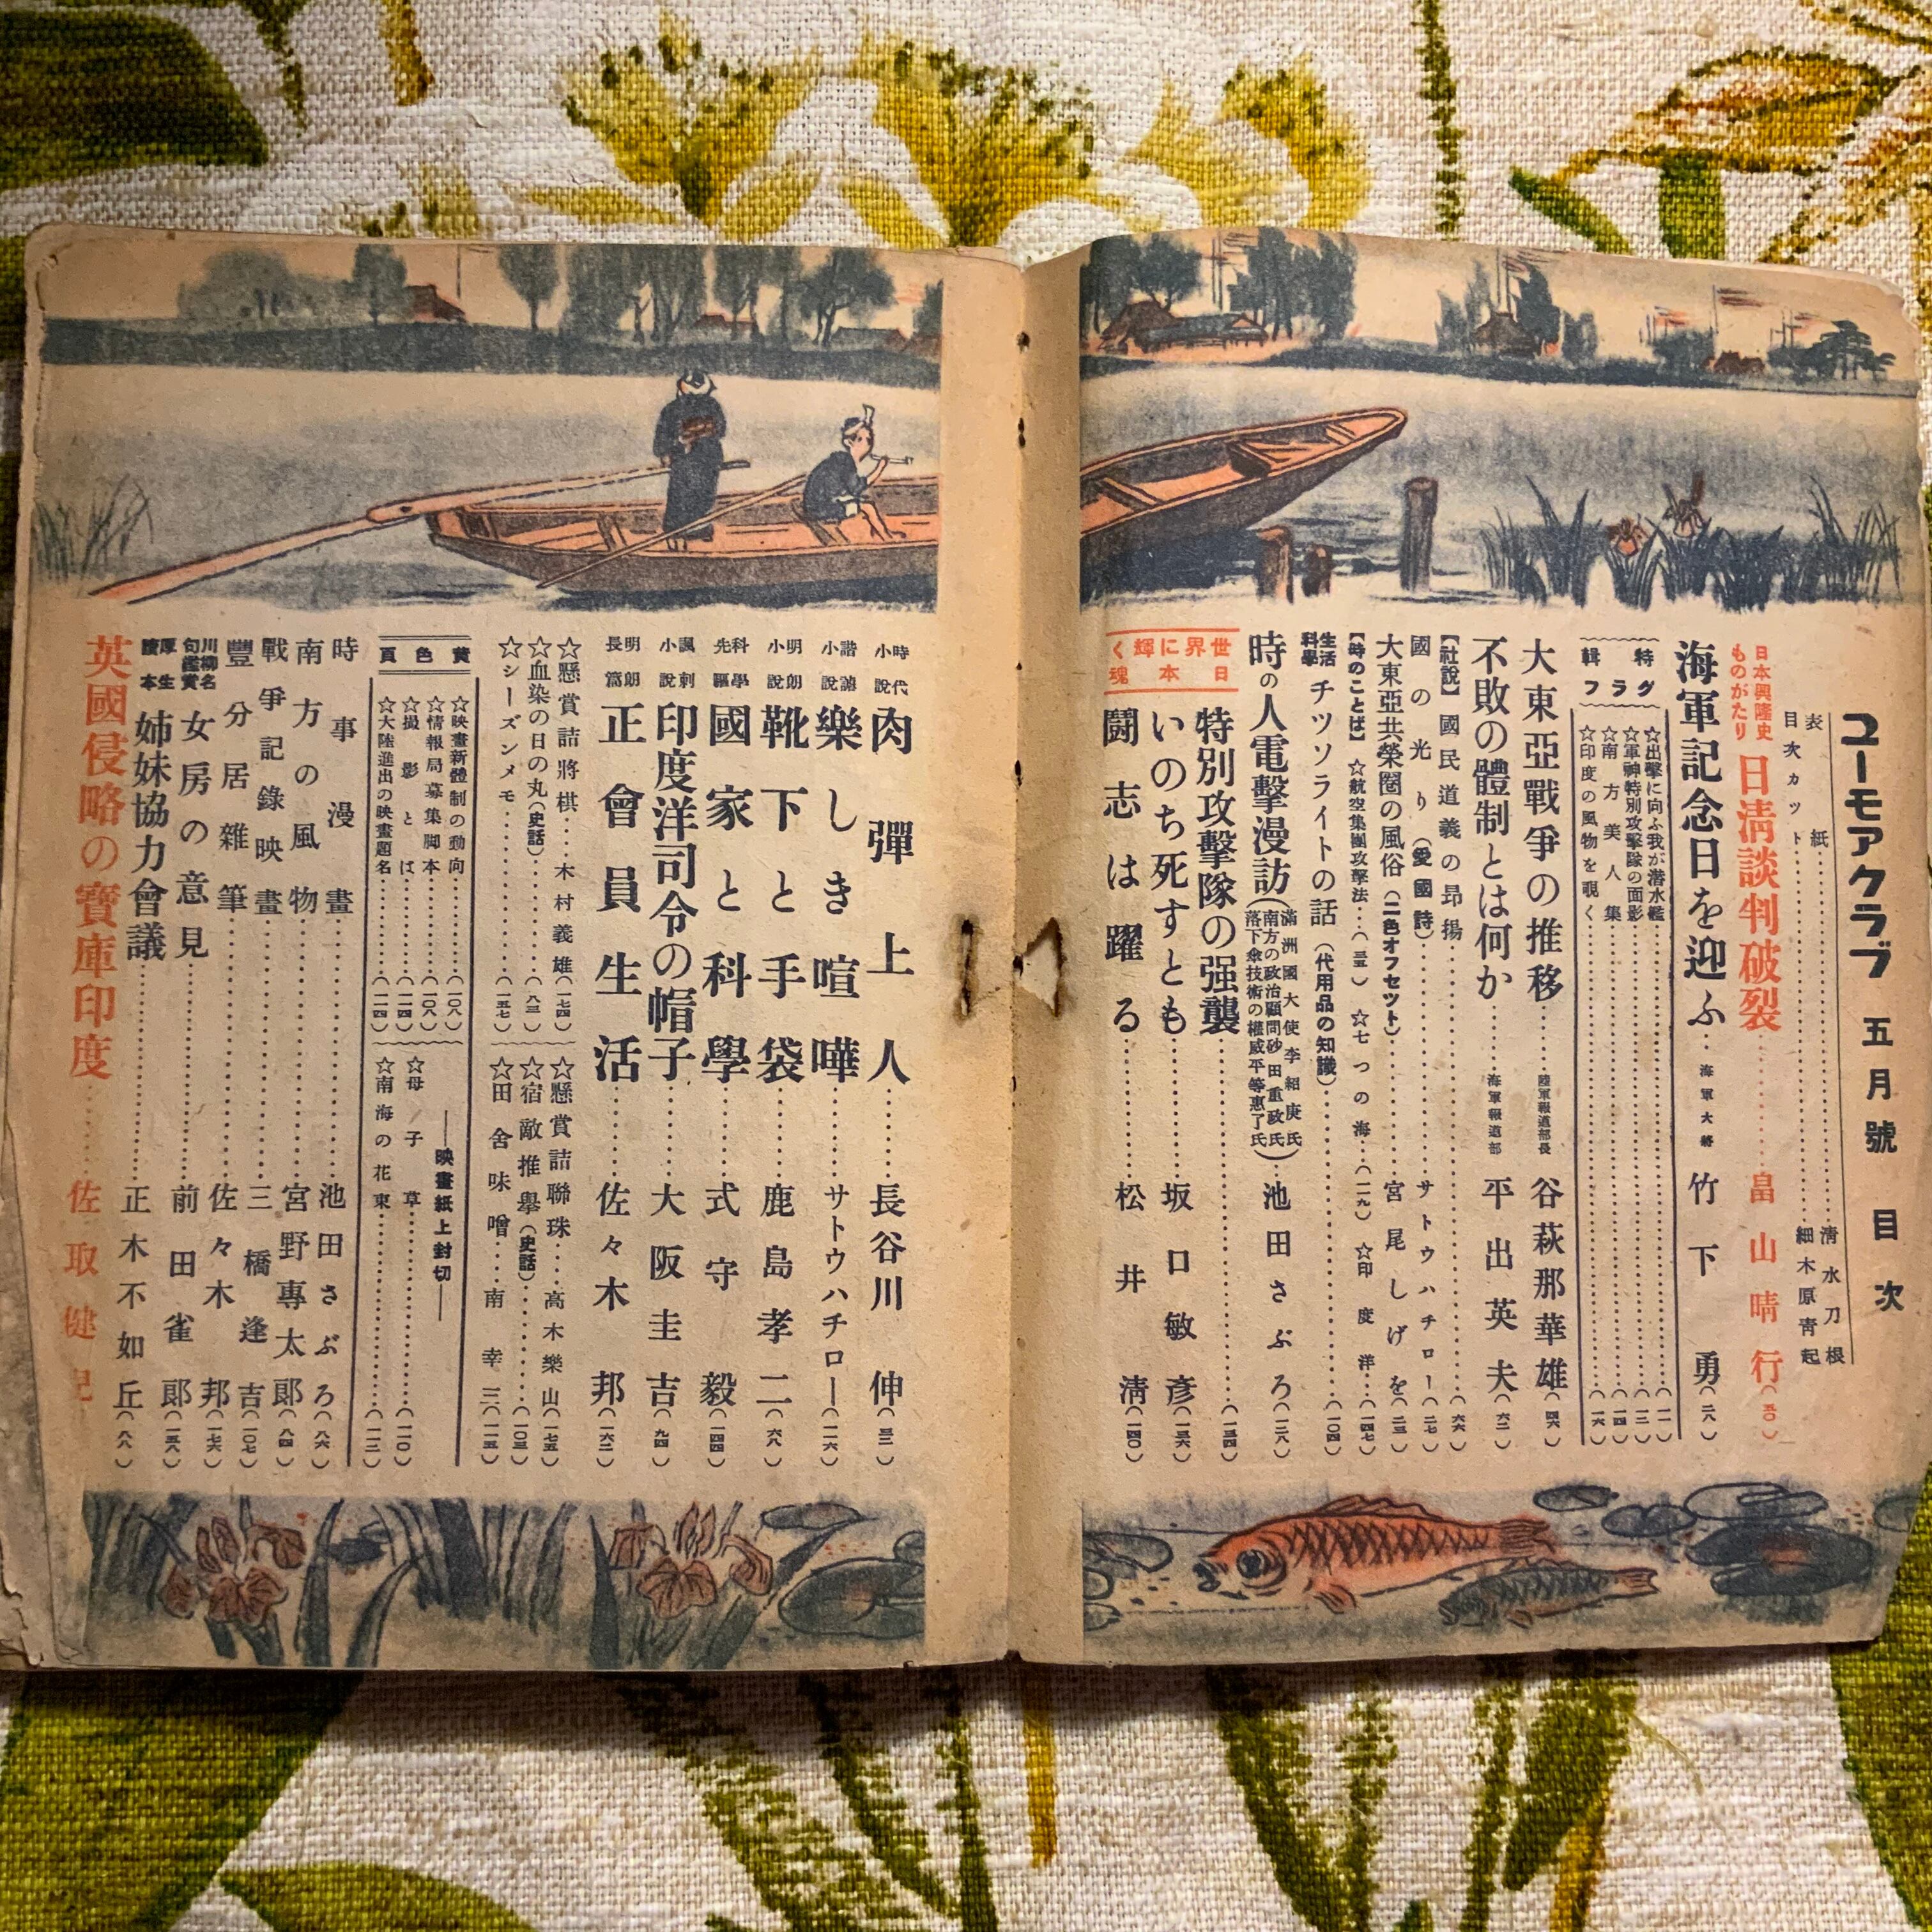 ユーモアクラブ 五月號 目次
表紙……清水刀根
目次カット……細木原青起
日本興隆史ものがたり 日淸談判破裂……畠山晴行(五〇)
海軍記念日を迎ふ…海軍大將 竹下勇(二八)
特輯グラフ
☆出擊に向ふ我が潜水艦……(一一)
☆軍神特別攻擊隊の面影……(一二)
☆南方美人集……(一四)
☆印度の風物を覗く……(一六)
大東亞戰爭の推移……陸軍報道部長 谷萩那華雄(四六)
不敗の體制とは何か……海軍報道部 平出英夫(六二)
【社說】國民道義の昂揚……(六六)
國の光り(愛國詩)……サトウハチロー(二七)
大東亞共榮圈の風俗(二色オフセツト)……宮尾しげを(二三)
【時のことば】☆航空集團攻擊法…(三五) ☆七つの海…(一一九) ☆印度洋…(一四七)
生活科學 チツソライトの話(代用品の知識)……(一〇四)
時の人電擊漫訪(滿洲國大使李紹庚氏 南方の政治顧問砂田重政氏 落下傘技術の權威平等惠了氏)…池田さぶろ(三八)
世界に輝く日本魂
特別攻擊隊の强襲……(一三四)
いのち死すとも……坂口敏彥(一三六)
鬪志は躍る……松井淸(一四〇)
時代小說 肉彈上人……長谷川伸(三二)
諧謔小說 樂しき喧嘩……サトウハチロー(一一六)
明朗小說 靴下と手袋……鹿島孝二(六八)
科學先驅 國家と科學……式守毅(一四四)
諷刺小說 印度洋司令の帽子……大阪圭吉(九四)
明朗長篇 正會員生活……佐々木邦(一六二)
☆懸賞詰將棋……木村義雄(一七四)
☆懸賞詰聯珠……高木樂山(一七五)
☆血染の日の丸(史話)……(八三)
☆宿敵推擧(史話)……(一〇三)
☆シーズンメモ……(一五七)
☆田舍味噌……南幸三(一一五)
黃色頁
☆映畫新體制の動向……(一〇八)
☆情報局募集脚本……(一〇八)
☆撮影とは……(一一四)
☆大陸進出の映畫題名……(一一四)
―映畫紙上封切―
☆母子草……(一一〇)
☆南海の花東……(一一二)
時事漫畫……池田さぶろ(八六)
南方の風物……宮野專太郞(八四)
戰爭記錄映畫……三橋逢吉(一〇七)
豐分居雜筆……佐々木邦(一七六)
川柳名句鑑賞 女房の意見……前田雀郞(一五八)
厚生讀本 姉妹協力會議……正木不如丘(八八)
英國侵略の寶庫印度……佐取健